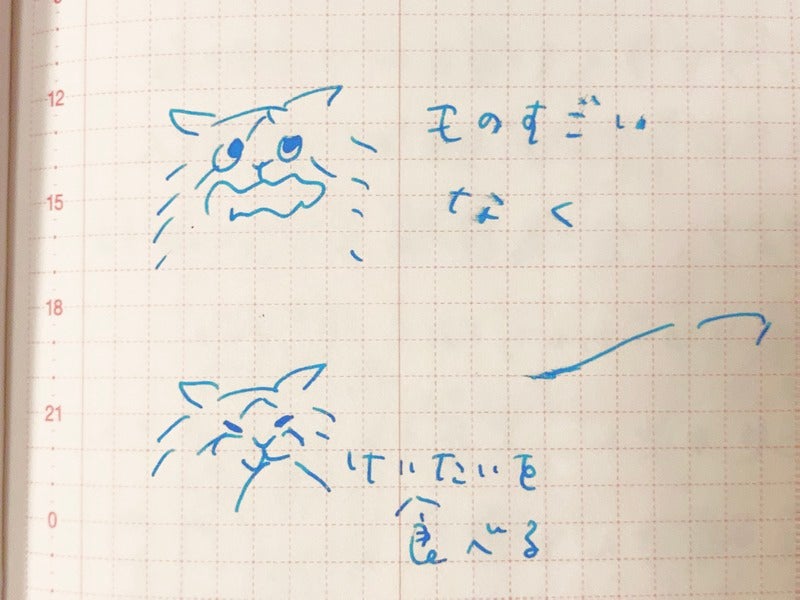 12
15
18
21
0
ものすごい
なく
けいたいを
食べる